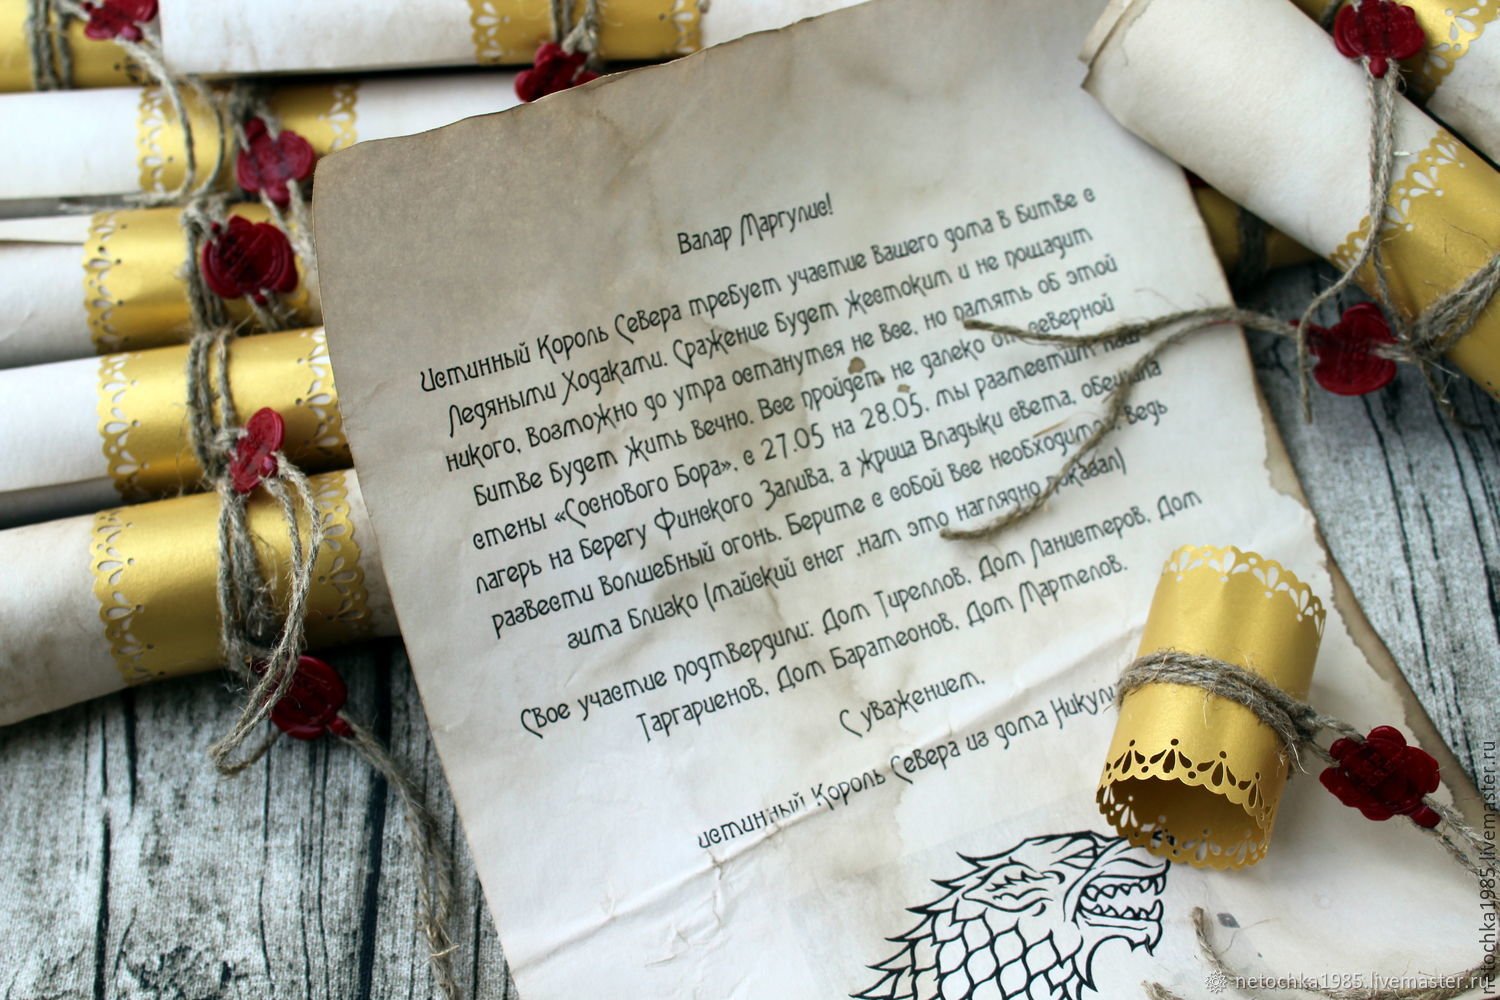 Валар Маргулис!
Истинный Король Севера требует участие Вашего дома в Битве с
Ледяными Ходаками. Сражение будет жестоким и не пощадит
никого, возможно до утра останутся не все, но память об этой
битве будет жить вечно. Все пройдет не далеко от северной
стены «Соснового Бора», с 27.05 на 28.05. мы разместим наш
лагерь на берегу Финского Залива, а жрица Владыки света, обещала
развести волшебный огонь. Берите с собой все необходимое, ведь
зима близко (майский снег ,нам это наглядно показал)
Свое участие подтвердили: Дом Тиреллов, Дом Ланистеров, Дом
Таргариенов, Дом Баратеонов, Дом Мартелов.
С уважением,
истинный Король Севера из дома
netochka1985.livemaster.ru
netochka1985.livemaster.ru